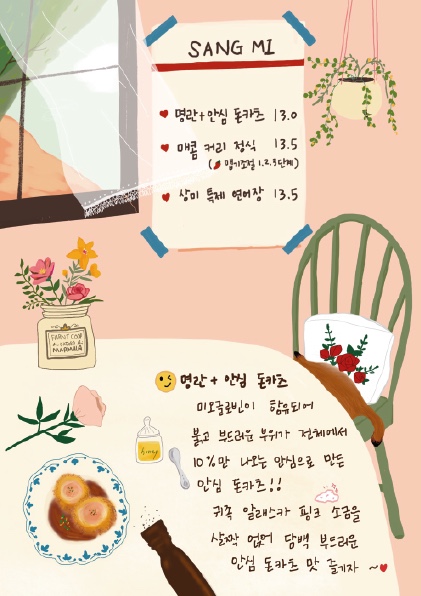 SANG MI
♥ 명란+안심 돈카츠 13.0
♥ 매콤 커리 정식 13.5
(맵기조절 1.2.3단계)
♥ 상미 특제 연어장 13.5
명란 + 안심 돈카츠
미오글로빈이 함유되어
붉고 부드러운 부위가 전체에서
10%만 나오는 안심으로 만든
안심 돈카츠!!
귀족 알래스카 핑크 소금을
살짝 얹어 담백 부드러운
안심 돈카츠 맛 즐기자 ~♥
honey